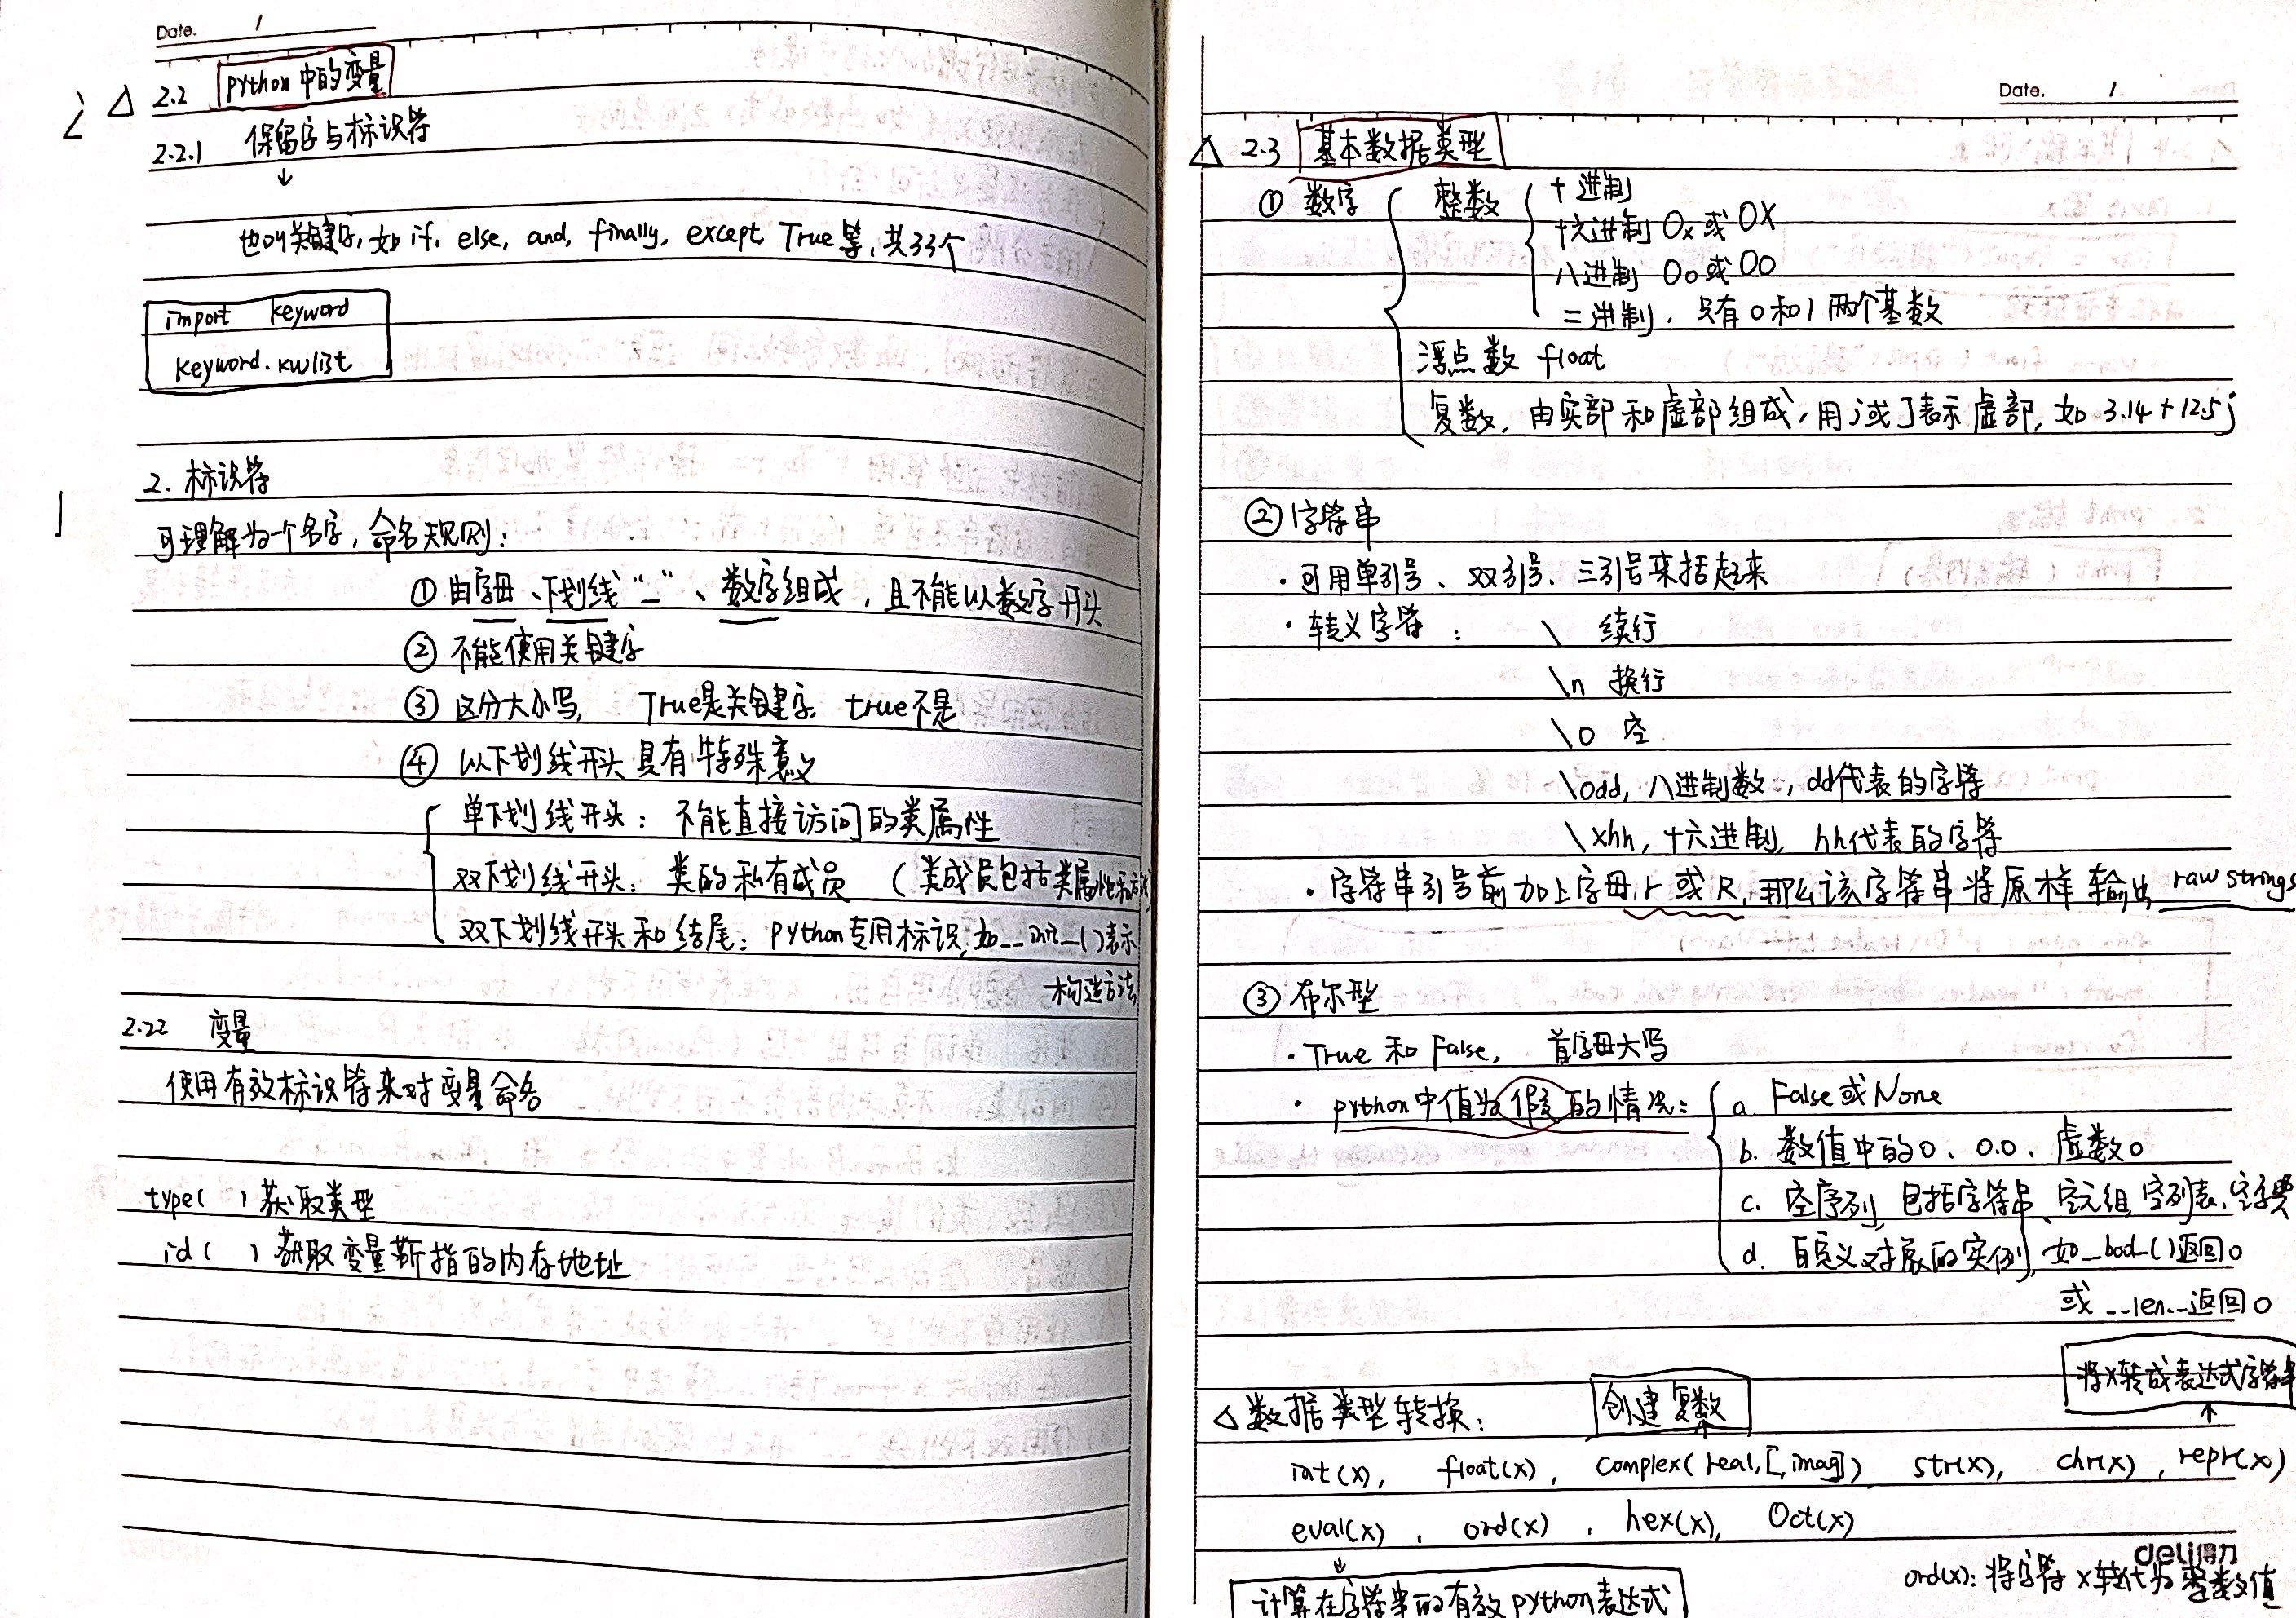 Date. /
△ 2.2 python 中的变量
2.2.1 保留字与标识符
↓
也叫关键字,如 if, else, and, finally, except, True等,共33个
import keyword
keyword.kwlist
2. 标识符
可理解为一个名字,命名规则:
① 由字母、下划线“_”、数字组成,且不能以数字开头
② 不能使用关键字
③ 区分大小写, True是关键字, true不是
④ 以下划线开头具有特殊意义
单下划线开头: 不能直接访问的类属性
双下划线开头: 类的私有成员 (类成员包括类属性和方法)
双下划线开头和结尾: python专用标识,如__init__()表示
构造方法
2.22 变量
使用有效标识符来对变量命名
type( ) 获取类型
id( ) 获取变量所指的内存地址
Date. /
△ 2.3 基本数据类型
① 数字 整数 十进制
十六进制 0x或0X
八进制 0o或0O
二进制, 只有0和1两个基数
浮点数 float
复数, 由实部和虚部组成, 用j或J表示虚部, 如 3.14+12.5j
② 字符串
· 可用单引号、双引号、三引号来括起来
· 转义字符: \ 续行
\n 换行
\0 空
\0dd, 八进制数, dd代表的字符
\xhh, 十六进制, hh代表的字符
· 字符串引号前加上字母r或R, 那么该字符串将原样输出 raw strings
③ 布尔型
· True 和 False, 首字母大写
· python中值为假的情况: a. False或None
b. 数值中的0、0.0、虚数0
c. 空序列, 包括字符串、空元组, 空列表, 空字典
d. 自定义对象的实例, 如__bool__()返回0
或 __len__返回0
将x转成表达式字符串
△ 数据类型转换: 创建复数
int(x), float(x), complex(real,[,imag]) str(x), chr(x), repr(x)
eval(x), ord(x), hex(x), Oct(x)
deli得力
ord(x): 将字符x转成为整数值
计算在字符串的有效python表达式